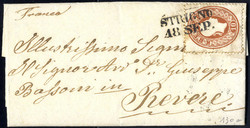 Franco
STRIGNO
18 SEP.
Illustrissimo Sign
Signor Avv. Dr. Giuseppe
Bassani in
Revere